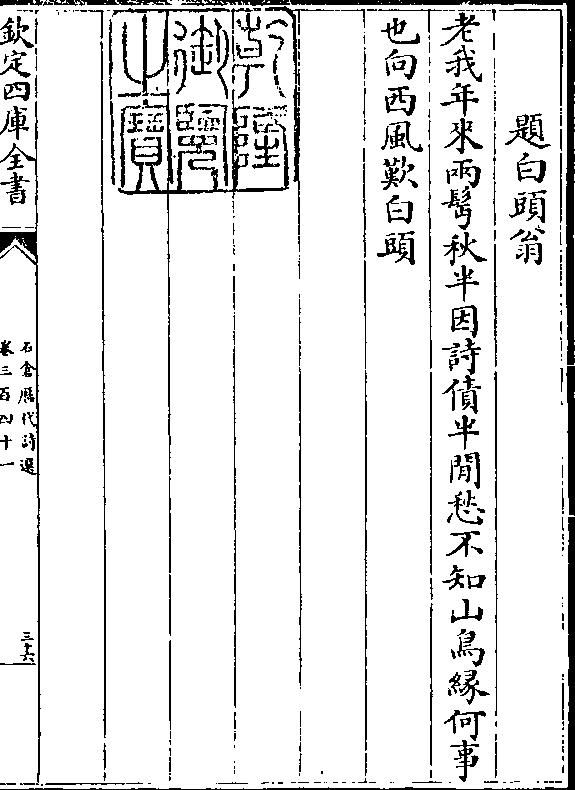 題白頭翁
老我年來兩鬂秋半因詩債半閒愁不知山鳥緣何事
也向西風歎白頭
乾隆
御覽
之寶
欽定四庫全書
石倉歷代詩選
卷三百四十一
三十六